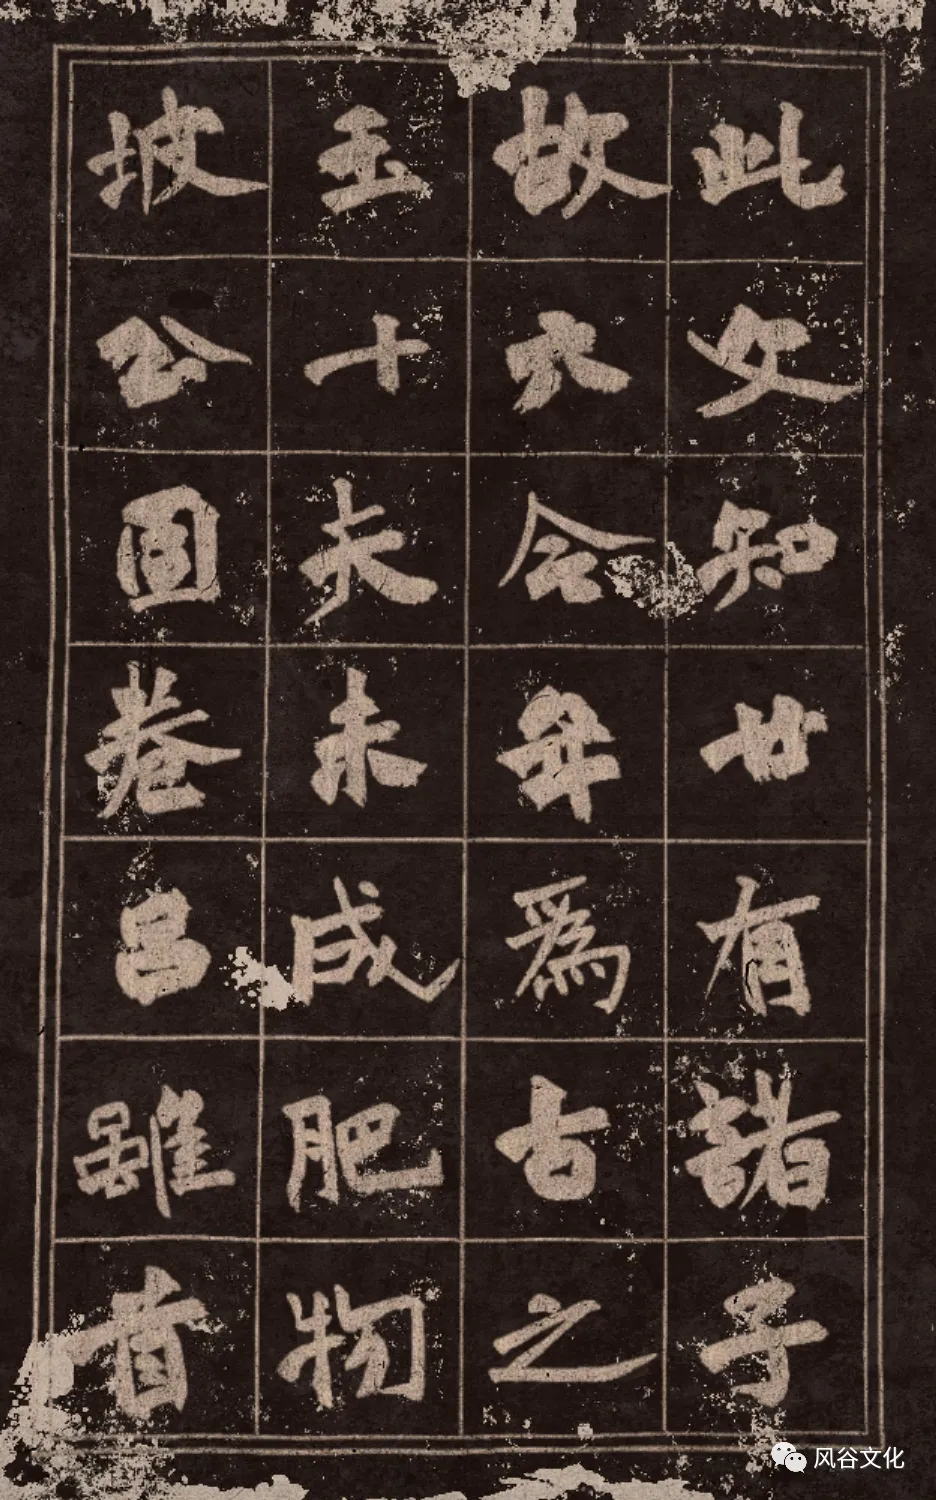 此文知廿有諸子
故六合年爲古之
玉十夫未成肥物
坡公固卷呂雖首
风谷文化